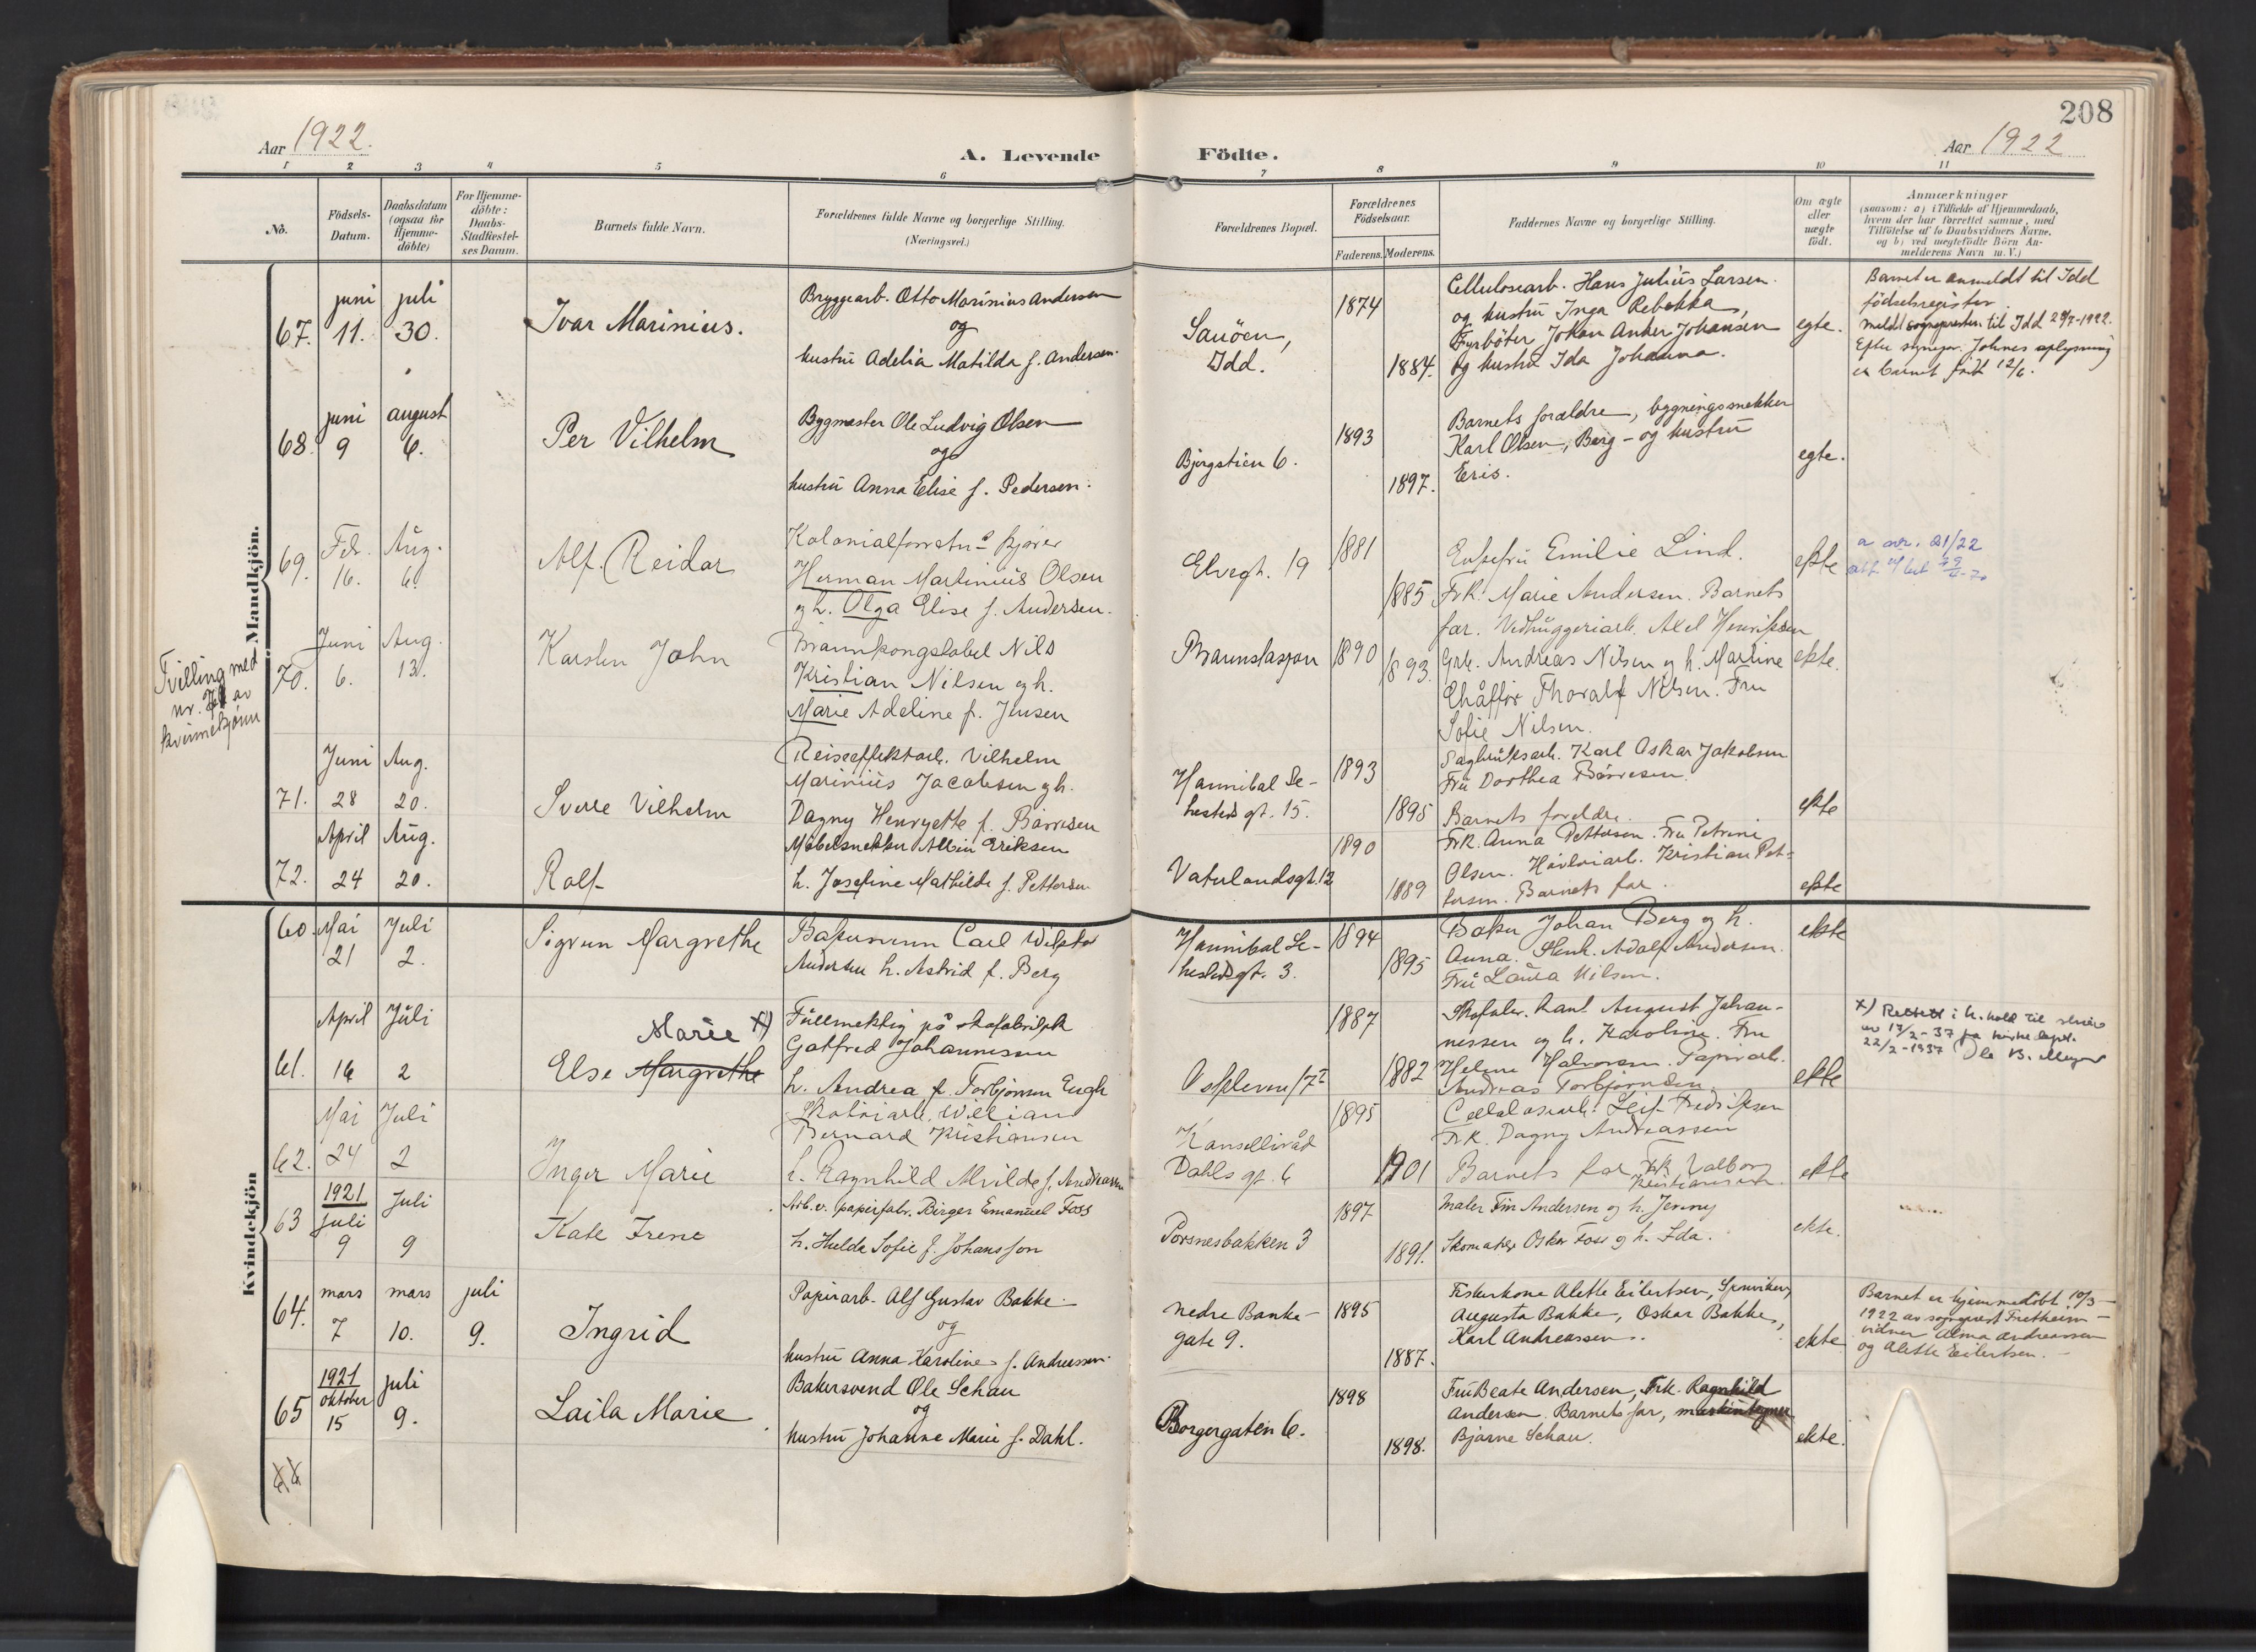 208
Aar 1922.
A. Levende
Födte.
Aar 1922
1 2 3 4 5 6 7 8 9 10 11
No.
Födsels-
Datum.
Daabsdatum
(ogsaa for
Hjemme-
döbte)
For Hjemme-
döbte:
Daabs-
Stadfæstel-
ses Datum.
Barnets fulde Navn.
Forældrenes fulde Navne og borgerlige Stilling.
(Næringsvei.)
Forældrenes Bopæl.
Forældrenes
Födselsaar.
Faderens.
Moderens.
Faddernes Navne og borgerlige Stilling.
Om ægte
eller
uægte
födt.
Anmærkninger
(saasom: a) i Tilfælde af Hjemmedaab,
hvem der har forrettet samme, med
Tilföielse af to Daabsvidners Navne,
og b) ved uægtefödte Börn An-
melderens Navn m. V.)
Mandkjön.
67.
juni
11.
juli
30.
Ivar Marinius.
Bryggearb. Otto Marinius Andersen
og
hustru Adelia Matilda f. Andersen.
Sauöen,
Idd.
1874
1884.
Cellulosearb. Hans Julius Larsen
og hustru Inga Rebekka,
Fyrböter Johan Anker Johansen
og hustru Ida Johanna.
egte.
Barnet er anmeldt til Idd
födselsregister.
meldt sognepresten til Idd 29/7-1922.
Efter sognepr. Johnes oplysning
er barnet födt 12/6.
68.
juni
9
august
6.
Per Vilhelm
Bygmester Ole Ludvig Olsen
og
hustru Anna Elise f. Pedersen.
Bjergstien 6.
1893
1897.
Barnets forældre, bygningssnekker
Karl Olsen, Berg - og hustru
Eris.
egte.
69.
Febr.
16.
Aug.
6.
Alf Reidar
Kolonialforretn.
Herman Martinius Olsen
og h. Olga Elise f. Andersen.
Elvegt. 19
1881
1885
Enkefru Emilie Lind.
Frk. Marie Andersen. Barnets
far. Vedhuggeriarb. Axel Henriksen
ekte
Tvilling med
nr. 71 av
kvinnekjønn
70.
Juni
6.
Aug.
13.
Karsten John
Brannkonstabel Nils
Kristian Nilsen og h.
Marie Adeline f. Jensen
Brannstasjon
1890
1893.
Grb. Andreas Nilsen og h. Martine
Chåffør Thoralf Nilsen. Fru
Sofie Nilsen.
ekte.
71.
Juni
28
Aug.
20.
Sverre Vilhelm
Reiseeffektarb. Vilhelm
Marinius Jacobsen og h.
Dagny Henryette f. Børresen
Hannibal Se-
hesteds gt. 15.
1893
1895
Sagbruksarb. Karl Oskar Jakobsen
Fru Dorthea Børresen.
Barnets foreldre.
ekte
72.
April
24
Aug.
20.
Rolf
Møbelsnekker Albin Eriksen
h. Josefine Mathilde f. Pettersen
Vaterlandsgt. 12
1890
1889
Frk. Anna Pettersen. Fru Petrine
Olsen. Høvleriarb. Kristian Pet-
tersen. Barnets far.
ekte
Kvindekjön
60.
Mai
21
Juli
2.
Sigrun Margrethe
Bakersvenn Carl Viktor
Andersen h. Astrid f. Berg
Hannibal Se-
hesteds gt. 3.
1894
1895
Baker Johan Berg og h.
Anna. Stenh. Adolf Andersen.
Fru Laura Nilsen.
ekte
61.
April
16
Juli
2
Marie x)
Else Margrethe
Fullmektig på skofabrikk
Gotfred Johannessen
h. Andrea f. Torbjørnsen Engh
Oskleven 17 I
1887
1882
Skofabr. August Johan-
nessen og h. Karoline. Fru
Helene Halvorsen. Papirarb.
Andreas Torbjørnsen.
ekte
x) Rettet i h.hold til skriv
av 17/2-37 fra kirkedept.
22/2-1937 Ole B. Meyer
62.
Mai
24
Juli
2
Inger Marie
Skotøiarb. William
Bernard Kristiansen
h. Ragnhild Alvilde f. Andreassen
Kanselliråd
Dahls gt. 6
1895
1901
Cellulosearb. Leif Fredriksen
Frk. Dagny Andreassen
Barnets far. Frk Valborg
Kristiansen.
ekte
63
1921
Juli
9
Juli
9
Kate Irene
Arb. v. papirfabr. Birger Emanuel Foss
h. Hulda Sofie f. Johansson
Porsnesbakken 3
1897
1891.
Maler Fin Andersen og h. Jenny
Skomaker Oskar Foss og h. Ida.
ekte.
64.
mars
7
mars
10.
juli
9.
Ingrid
Papirarb. Alf Gustav Bakke
og
hustru Anna Karoline f. Andreassen.
Nedre Banke-
gate 9.
1895
1887.
Fiskerkone Alette Eilertsen, Sponviken,
Augusta Bakke, Oskar Bakke,
Karl Andreassen.
ekte
Barnet er hjemmedöbt 10/3-
1922 av sognprest Fretheim -
vidner Alma Andreassen
og Alette Eilertsen.
65
1921
oktober
15
juli
9.
Laila Marie
Bakersvend Ole Schau
og
hustru Johanne Marie f. Dahl.
Borgergaten 6.
1898
1898.
Fru Beate Andersen, Frk. Ragnhild
Andersen. Barnets far,
Bjarne Schau.
ekte.